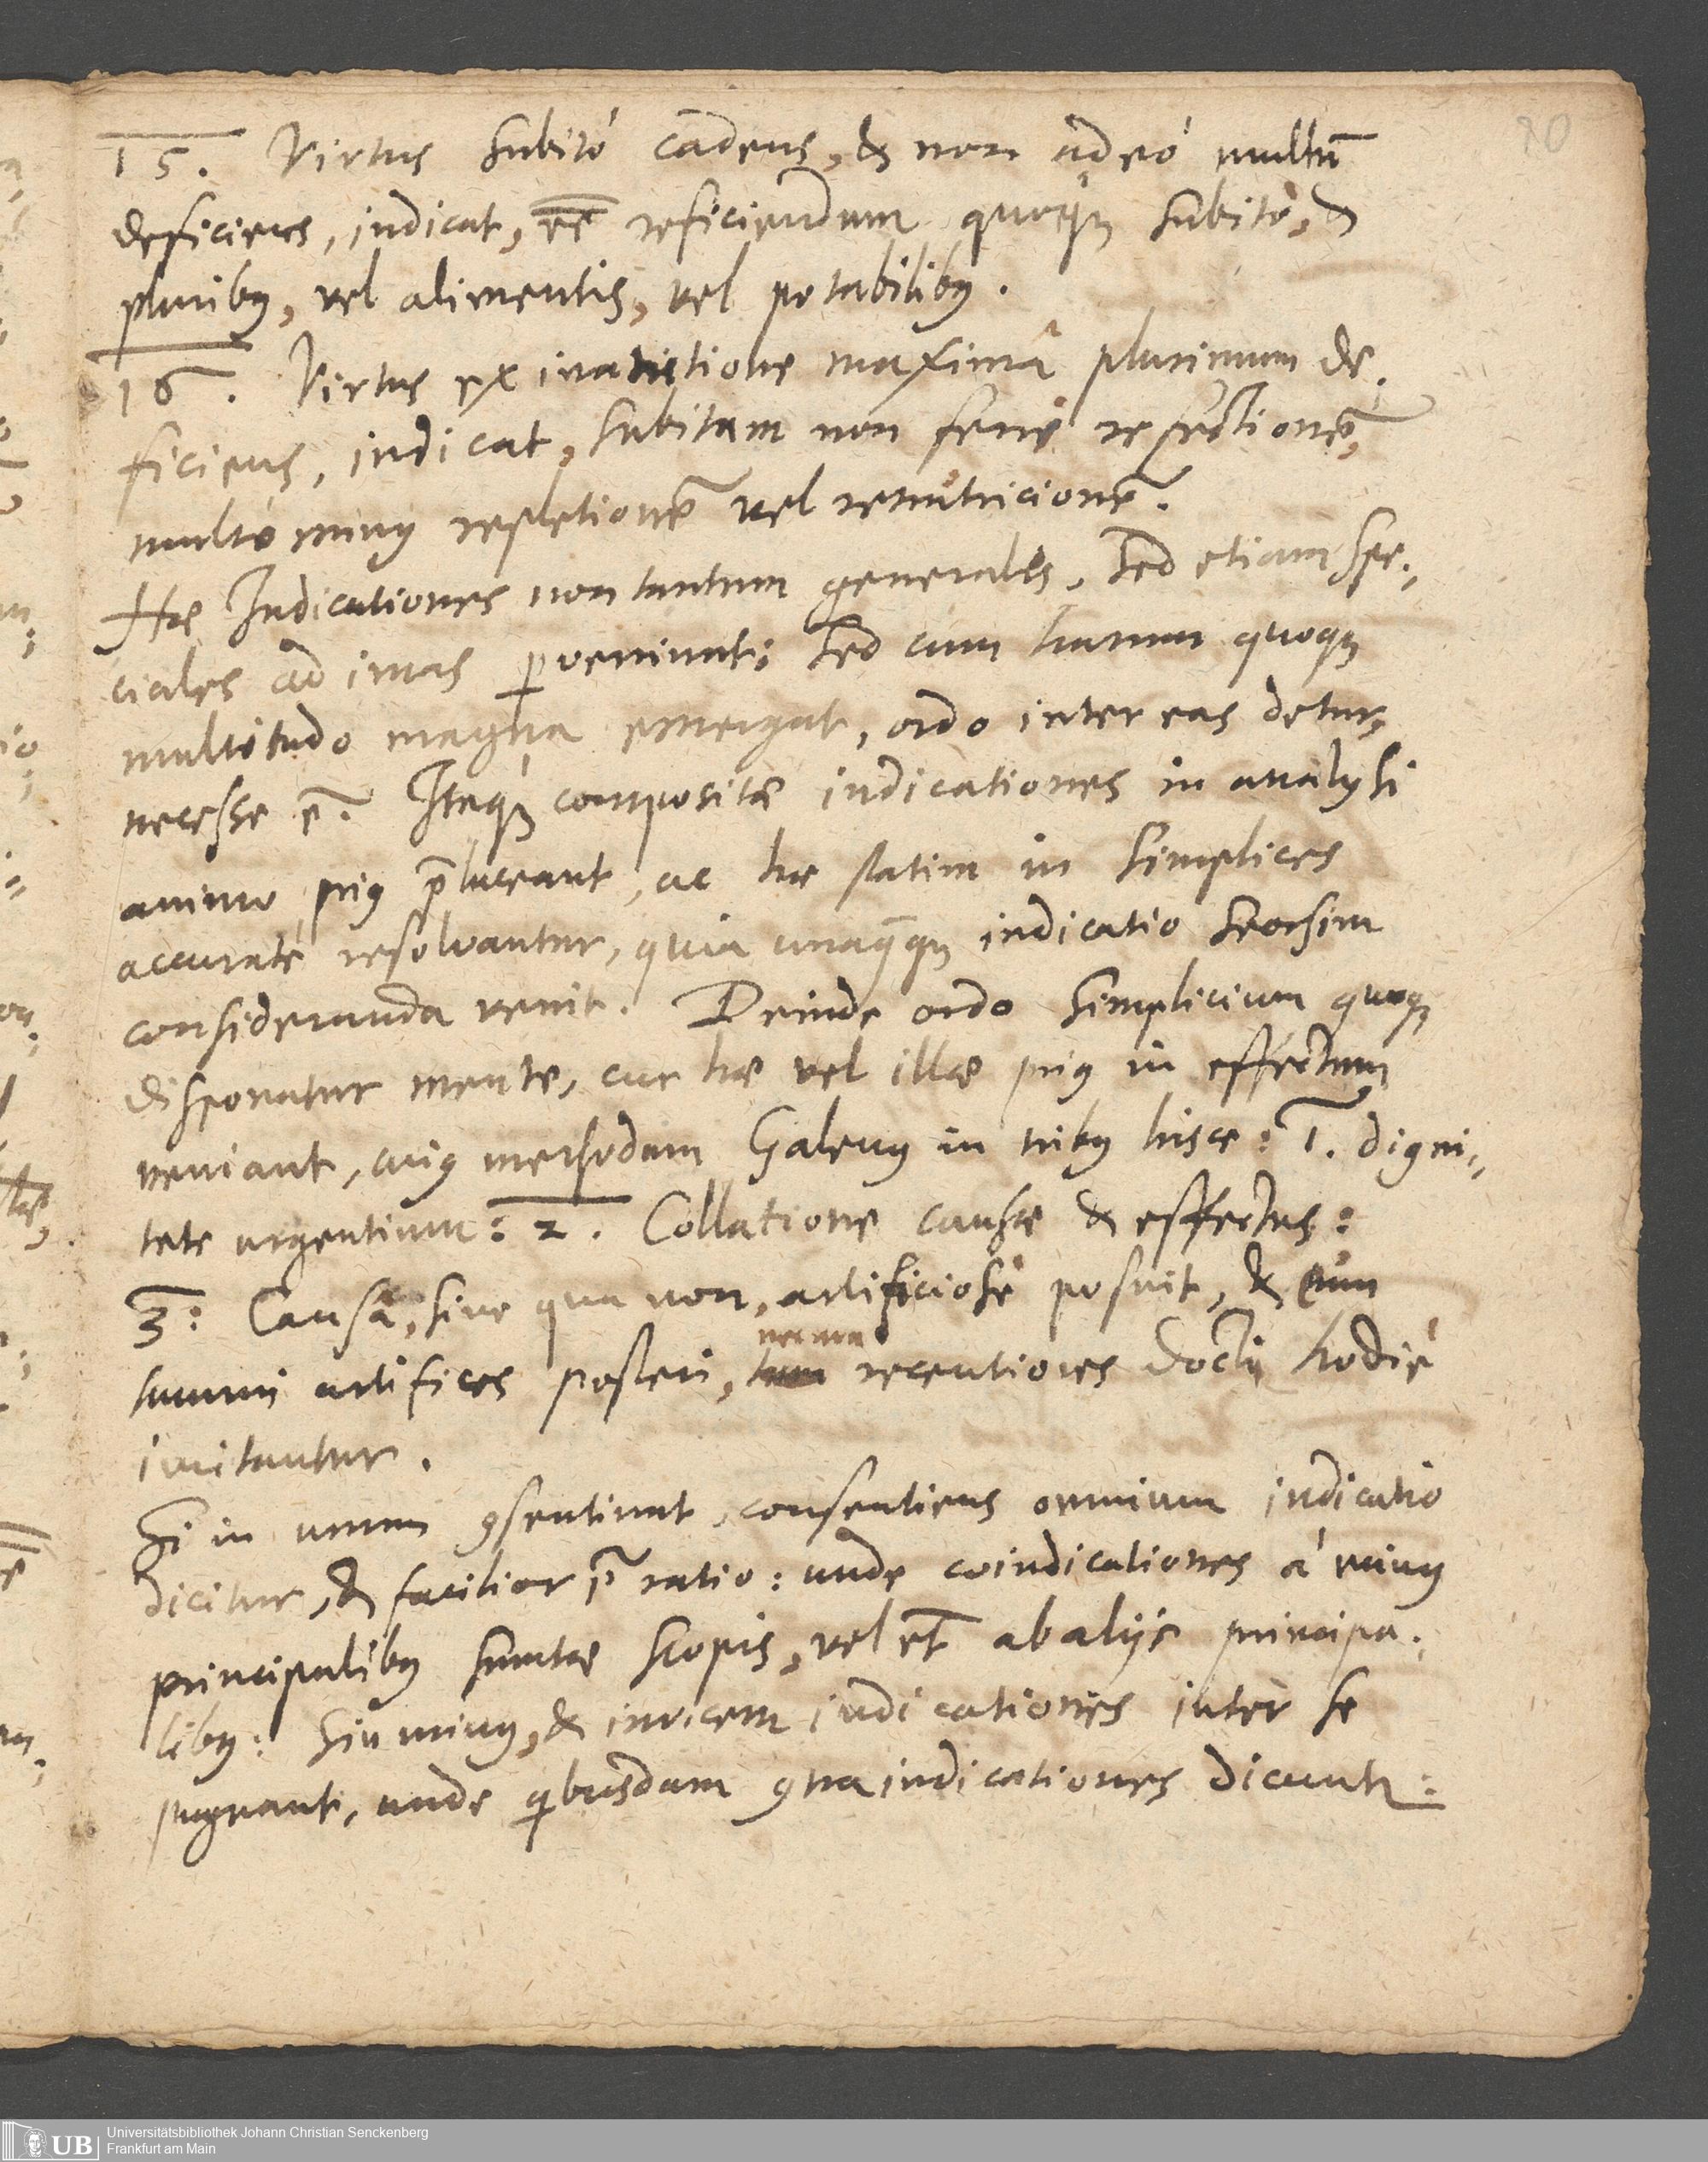 80
15. Virtus subitò cadens, & non adeò multũ
deficiens, indicat, eē reficiendam quoqꝫ subito, &
pluribꝰ, vel alimentis, vel potabilibꝰ.
16. Virtus ex inanitione maximâ plurimum de-
ficiens, indicat, subitam non ferre refectionẽ,
multò minꝰ repletionẽ vel renutricionẽ.
Hæ Indicationes non tantum generales, sed etiam spe-
ciales ad imas ꝑveniunt: sed cum harum quoqꝫ
multitudo magna emergat, ordo inter eas detur,
necesse ẽ. Itaqꝫ compositæ indicationes in analysi
animo priꝰ p̃luceant, ac hæ statim in simplices
accuratè resolvantur, quia unaq̃qꝫ indicatio seorsim
consideranda venit. Deinde ordo simplicium quoqꝫ
disponatur mente, cur hæ vel illæ priꝰ in effectum
veniant, cuiꝰ methodum Galenꝰ in tribꝰ hisce: 1. digni-
tate urgentium: 2. Collatione causæ & effectus:
3: Causâ, sine qua non, artificiosè posuit, & eum
summi artifices posteri, recentiores docti hodiè
imitantur.
Si in unum ꝯsentiunt, consentiens omnium indicatio
dicitur, & facilior ẽ ratio: unde coindicationes à minꝰ
principalibꝰ sumtæ scopis, vel et̃ ab aliis principa-
libꝰ: Sin minꝰ, & invicem indicationes inter se
pugnant, unde qibusdam ꝯtraindicationes dicunt᷑:
UB Universitätsbibliothek Johann Christian Senckenberg
Frankfurt am Main